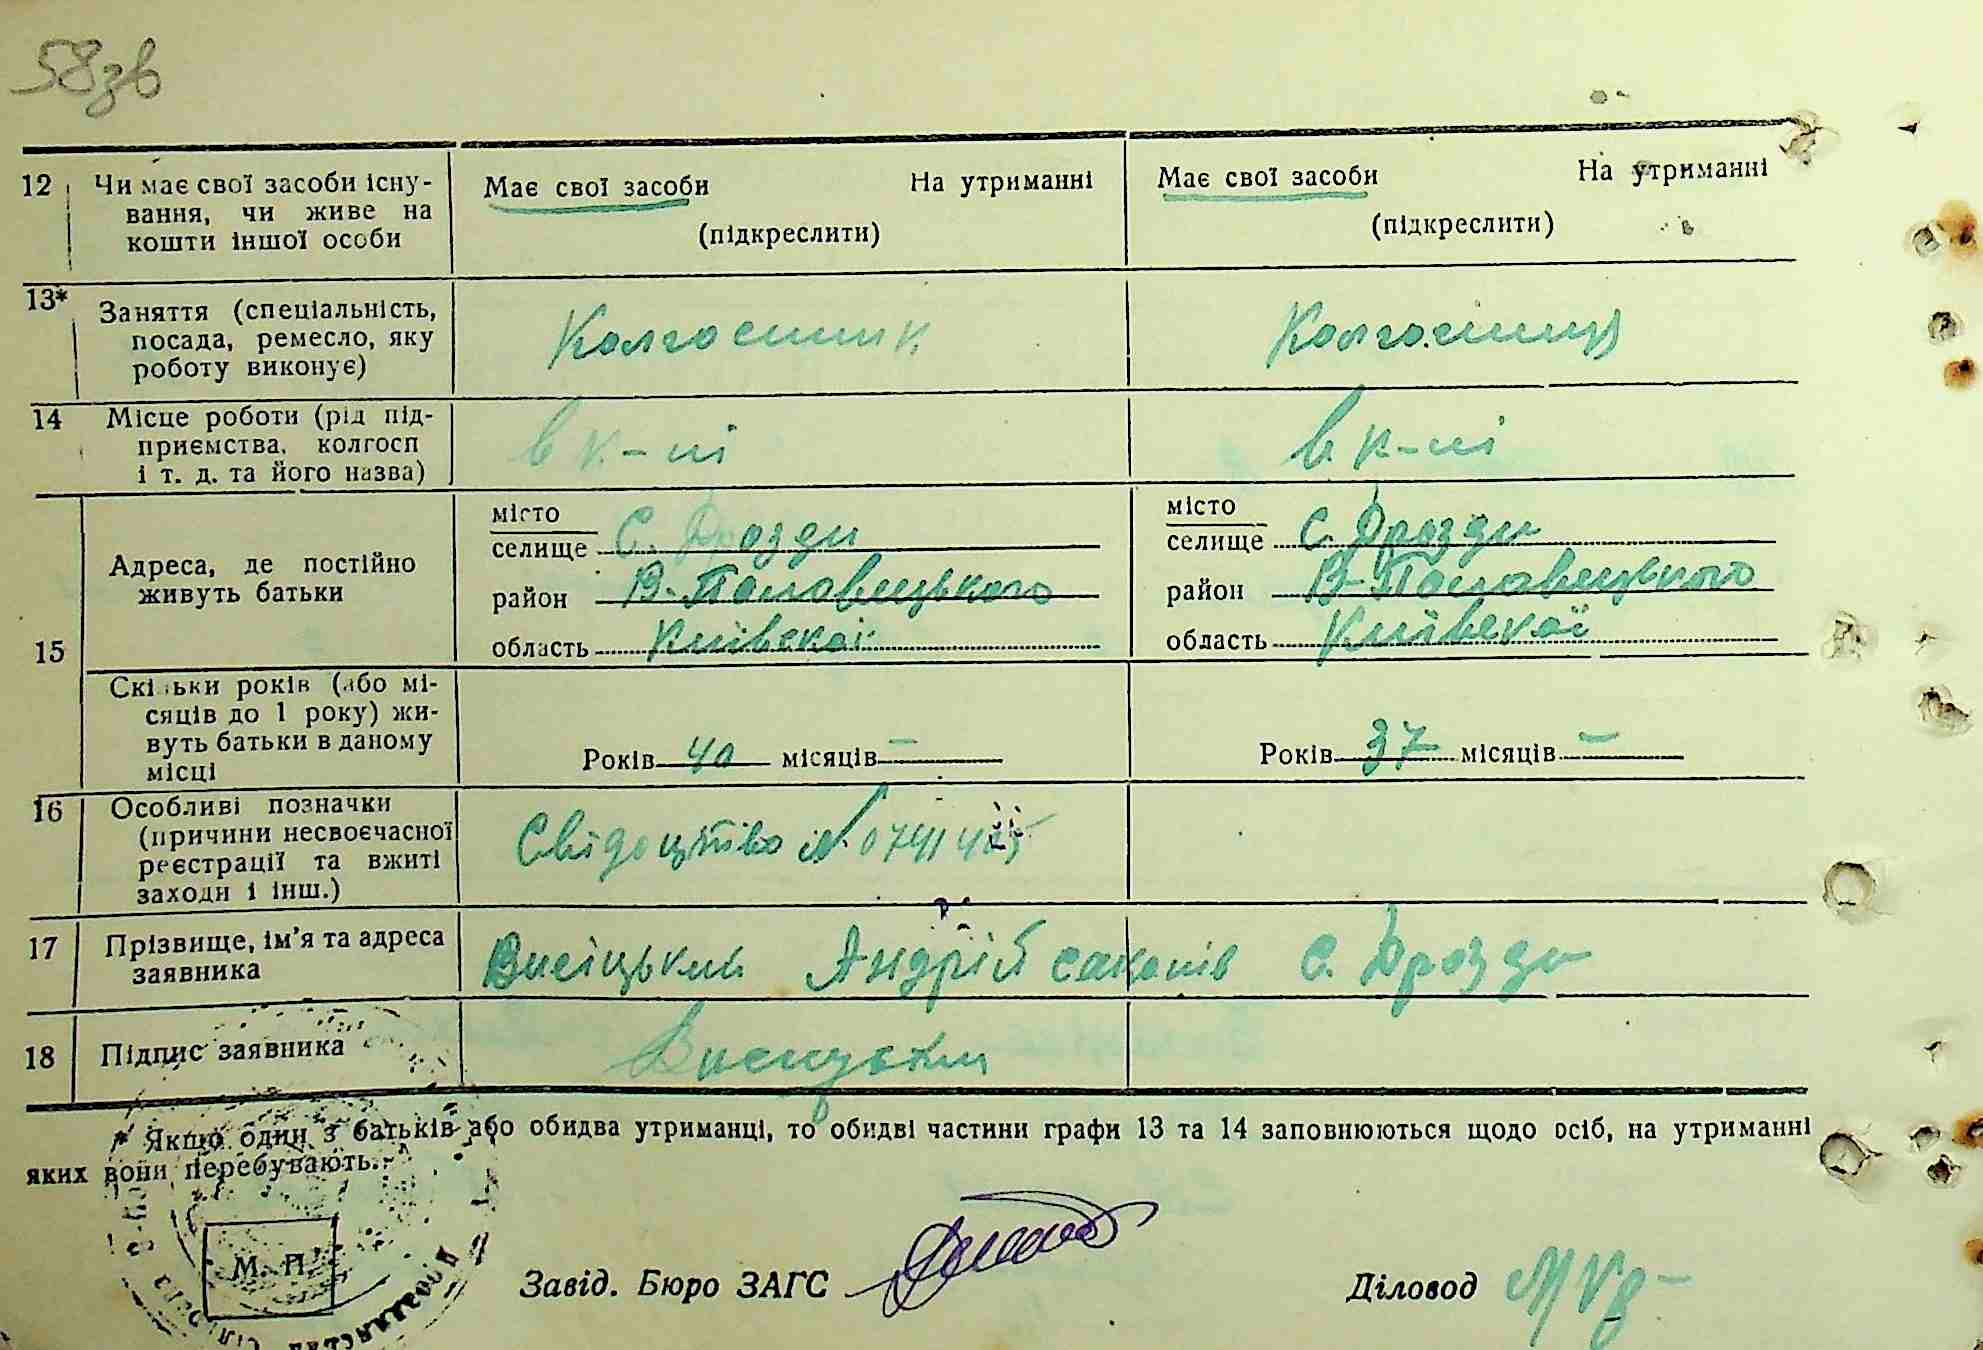 58зв
12 Чи має свої засоби існу- Має свої засоби На утриманні Має свої засоби На утриманні
вання, чи живе на (підкреслити) (підкреслити)
кошти іншої особи
13* Заняття (спеціальність, Колгоспник Колгоспниця
посада, ремесло, яку
роботу виконує)
14 Місце роботи (рід під- в к-пі в к-пі
приємства, колгосп
і т. д. та його назва)
15 Адреса, де постійно живуть батьки
місто
селище С. Дрозди
район В-Половецького
область Київскої
місто
селище С. Дрозди
район В-Половецького
область Київскої
Скільки років (або мі-
сяців до 1 року) жи-
вуть батьки в даному
місці
Років 40 місяців — Років 37 місяців —
16 Особливі позначки
(причини несвоєчасної Свідоцтво №
реєстрації та вжиті
заходи і інш.)
17 Прізвище, ім'я та адреса Висіцький Андрій с. Дрозди
заявника
18 Підпис заявника Висицький
* Якщо один з батьків або обидва утриманці, то обидві частини графи 13 та 14 заповнюються щодо осіб, на утриманні
яких вони перебувають.
М. П.
Завід. Бюро ЗАГС Діловод